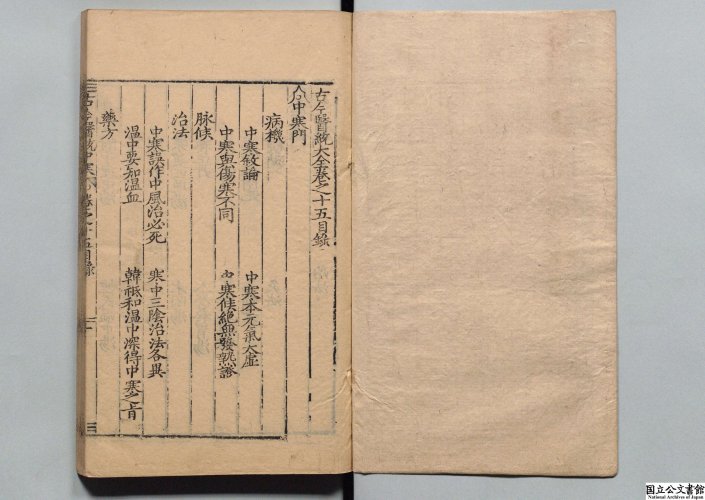 古今醫統大全卷之十五目錄
中寒門
病機
中寒敘論 中寒本元氣大虛
中寒與傷寒不同 中寒候絕無發熱證
脉候
治法
中寒誤作中風治必死 寒中三陰治法各異
溫中要知溫血 韓祗和溫中深得中寒之旨
藥方
古今醫統中寒 卷之十五目錄 一
国立公文書館
National Archives of Japan